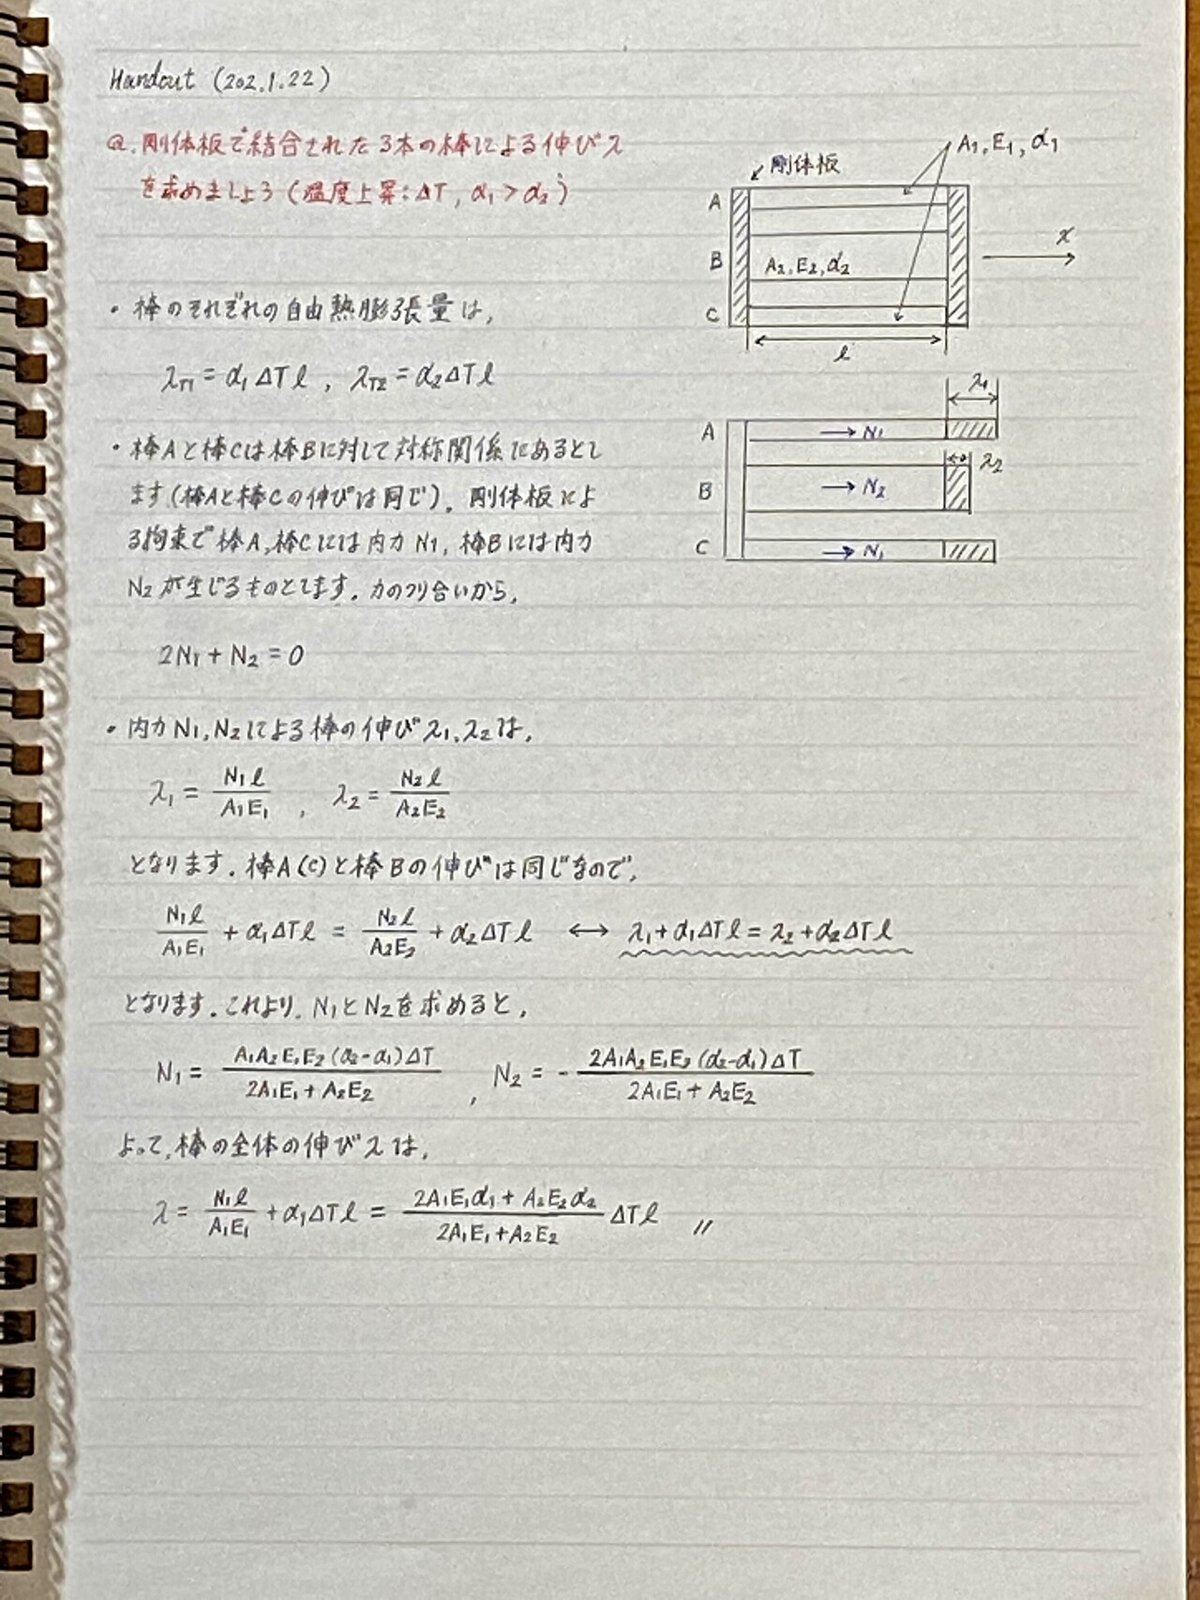 Handout (202.1.22)
Q. 剛体板で結合された3本の棒による伸びλ
を求めましょう (温度上昇: ΔT, α₁ > α₂)
剛体板
A₁, E₁, α₁
A
B
C
A₂, E₂, α₂
x
l
・棒のそれぞれの自由熱膨張量は,
λT1 = α₁ΔTl , λT2 = α₂ΔTl
λ₁
A
→ N₁
λ₂
B
→ N₂
C
→ N₁
・棒Aと棒Cは棒Bに対して対称関係にあるとし
ます(棒Aと棒Cの伸びは同じ). 剛体板によ
る拘束で棒A, 棒Cには内力N₁, 棒Bには内力
N₂が生じるものとします. 力のつり合いから,
2N₁ + N₂ = 0
・内力N₁, N₂による棒の伸びλ₁, λ₂は,
λ₁ = N₁l / A₁E₁ , λ₂ = N₂l / A₂E₂
となります. 棒A(C)と棒Bの伸びは同じなので,
N₁l / A₁E₁ + α₁ΔTl = N₂l / A₂E₂ + α₂ΔTl ↔ λ₁ + α₁ΔTl = λ₂ + α₂ΔTl
となります. これより, N₁とN₂を求めると,
N₁ = A₁A₂E₁E₂(α₂-α₁)ΔT / 2A₁E₁ + A₂E₂ , N₂ = - 2A₁A₂E₁E₂(α₂-α₁)ΔT / 2A₁E₁ + A₂E₂
よって, 棒の全体の伸びλは,
λ = N₁l / A₁E₁ + α₁ΔTl = 2A₁E₁α₁ + A₂E₂α₂ / 2A₁E₁ + A₂E₂ ΔTl //